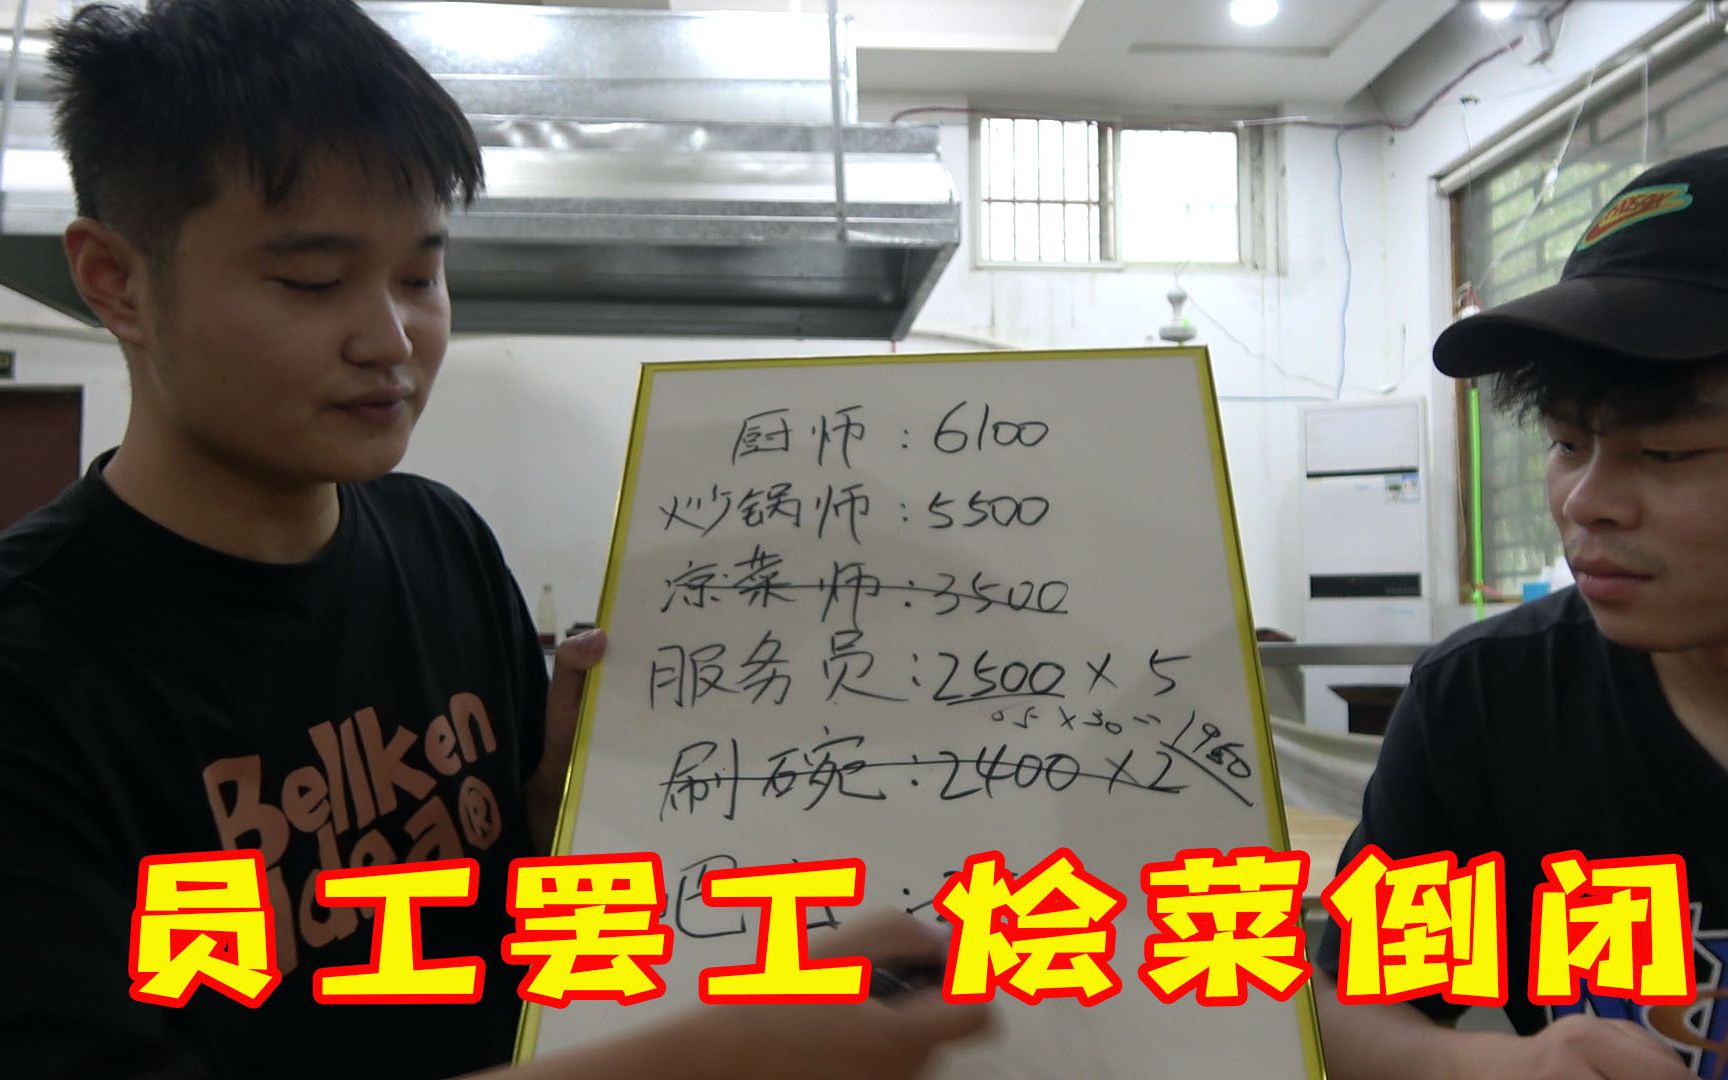 厨师：6100
炒锅师：5500
凉菜师：3500
服务员：2500×5
65×30=1950
刷碗：2400×2
吧
Bellken
Idea®
员工罢工 烩菜倒闭